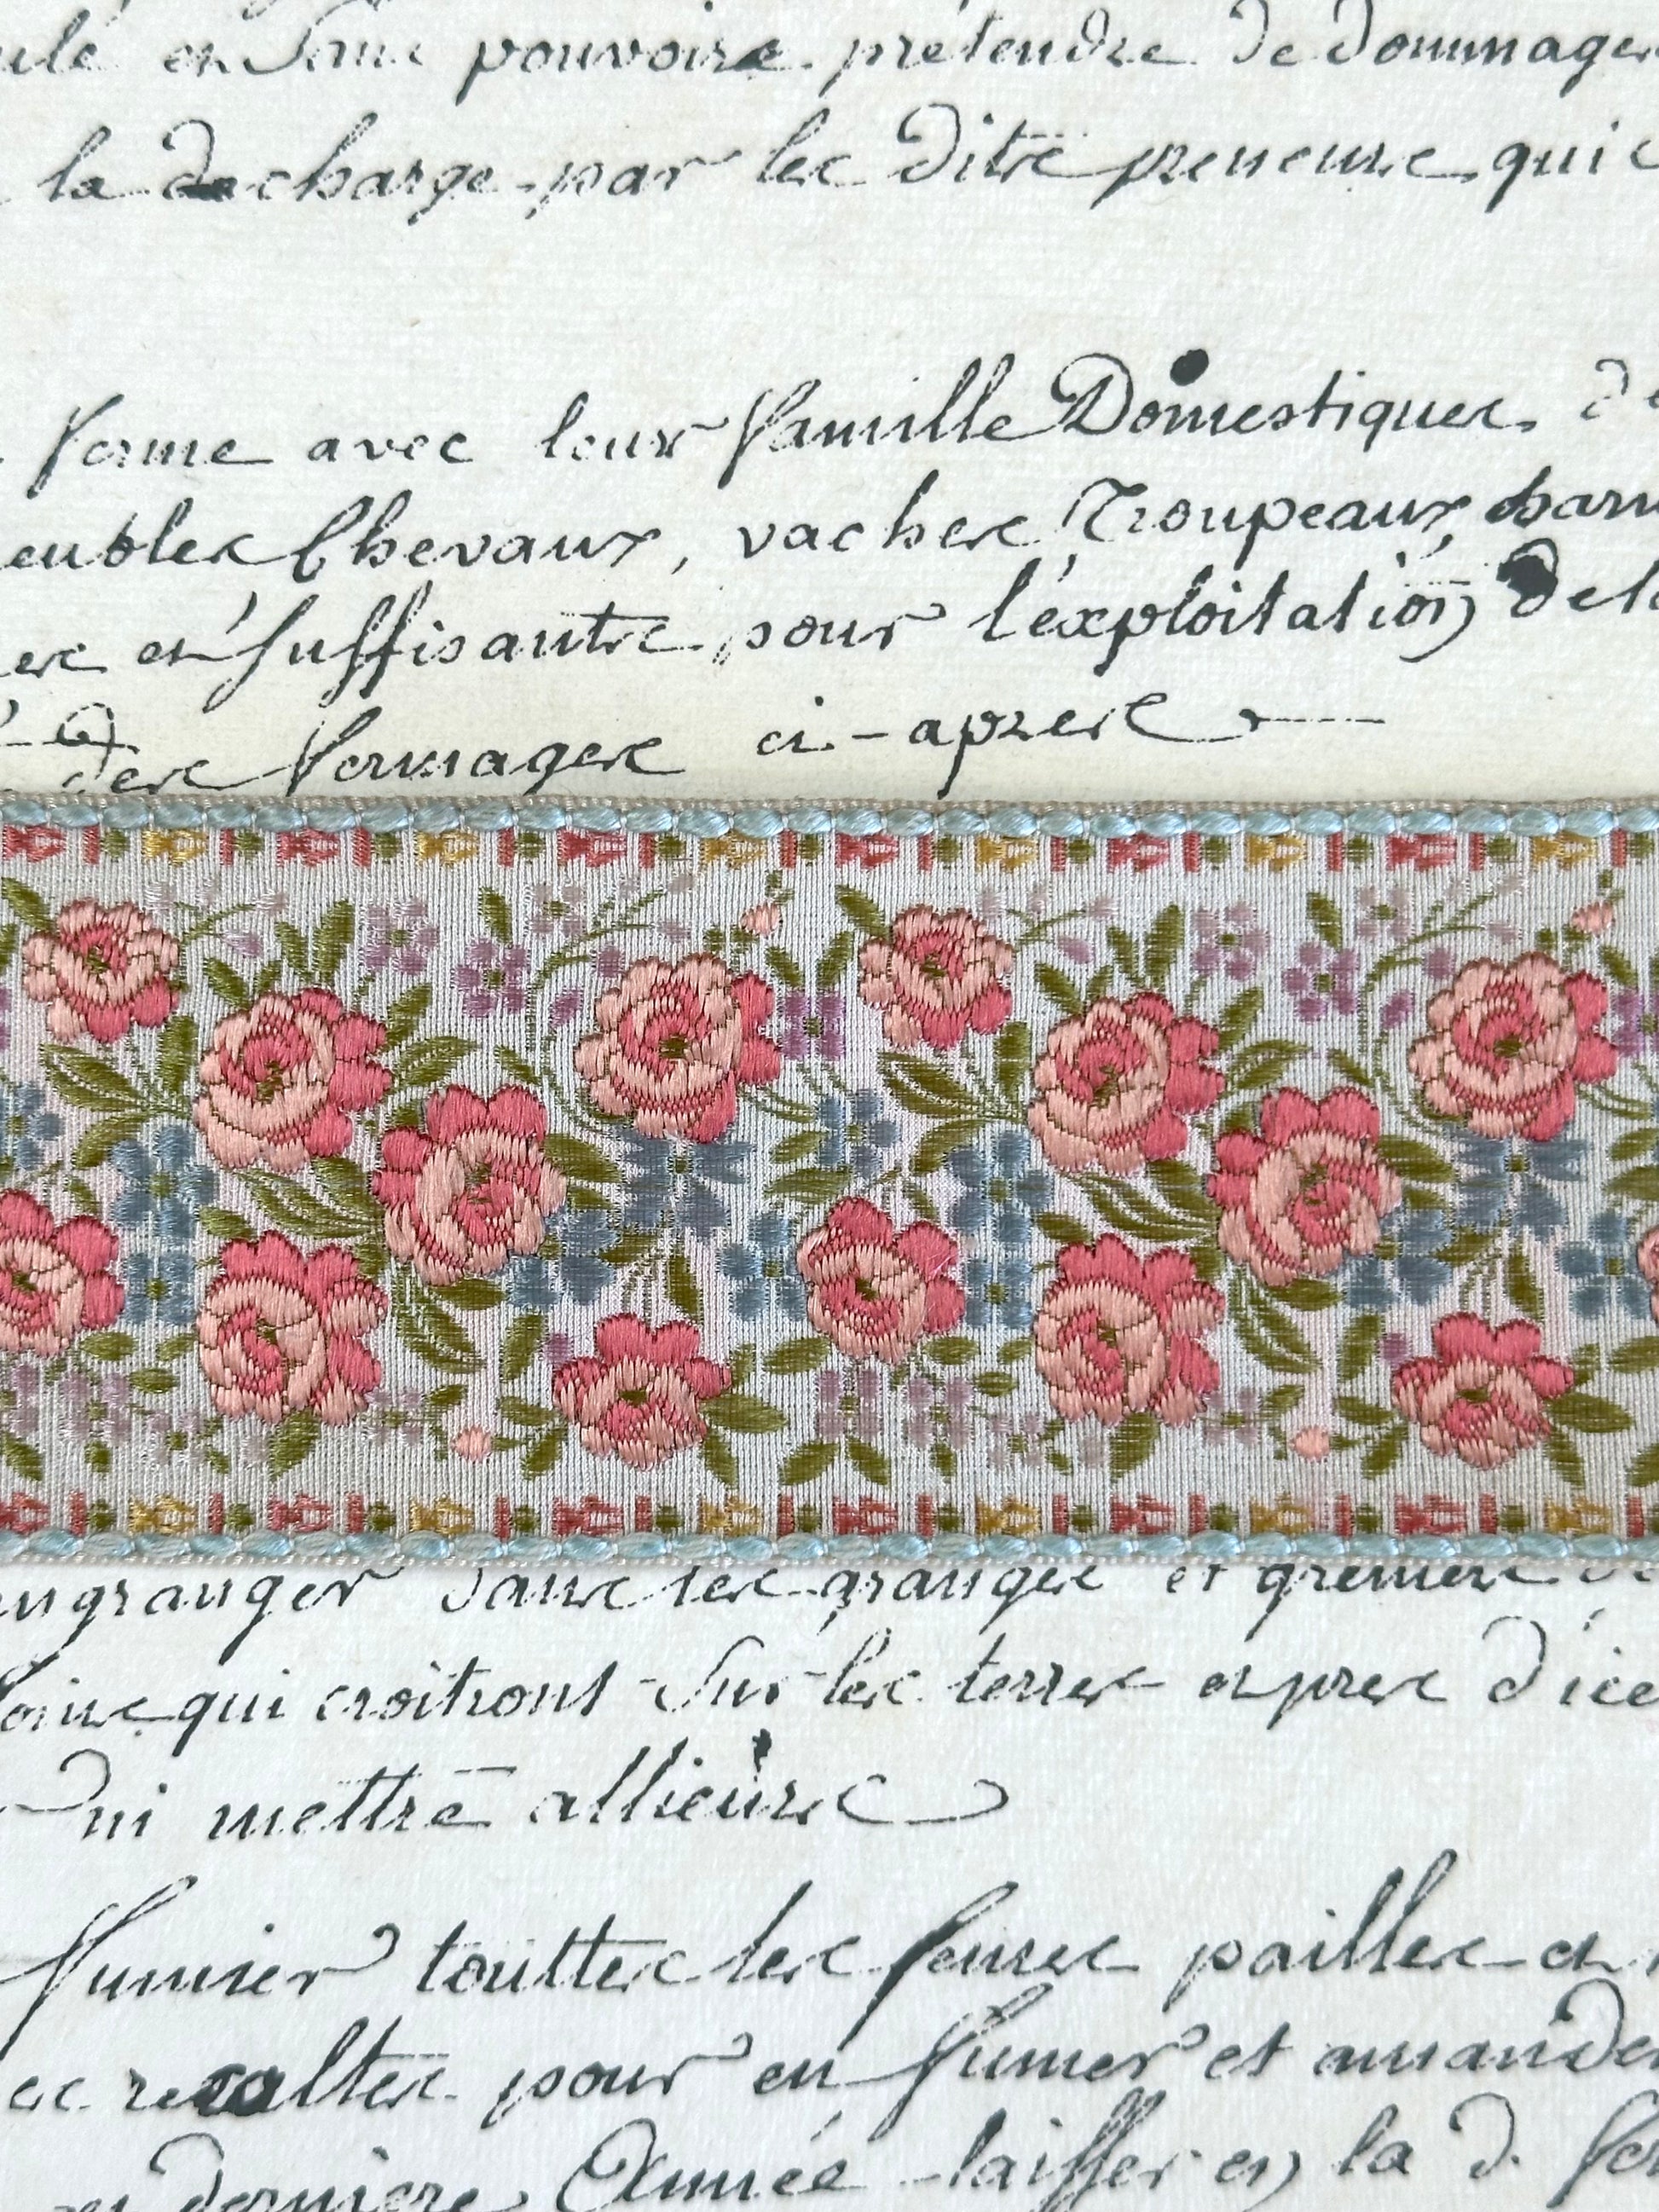 ulé en Sans pouvoirs prétendre de dommages
la decharge par les dits preneurs qui
ferme avec leur famille Domestiques. de
eubles Chevaux, vaches Troupeaux, harn
es en Suffisante pour l'éxploitation de la
des fermages ci-apres
engranger dans les granges et greniers de
foins qui croîtront Sur les terres et pres d'ice
ni mettre allieurs
fumier touttes les feures pailles et
es recoltes pour en fumer et amander
derniere Année laisser en la d. fer